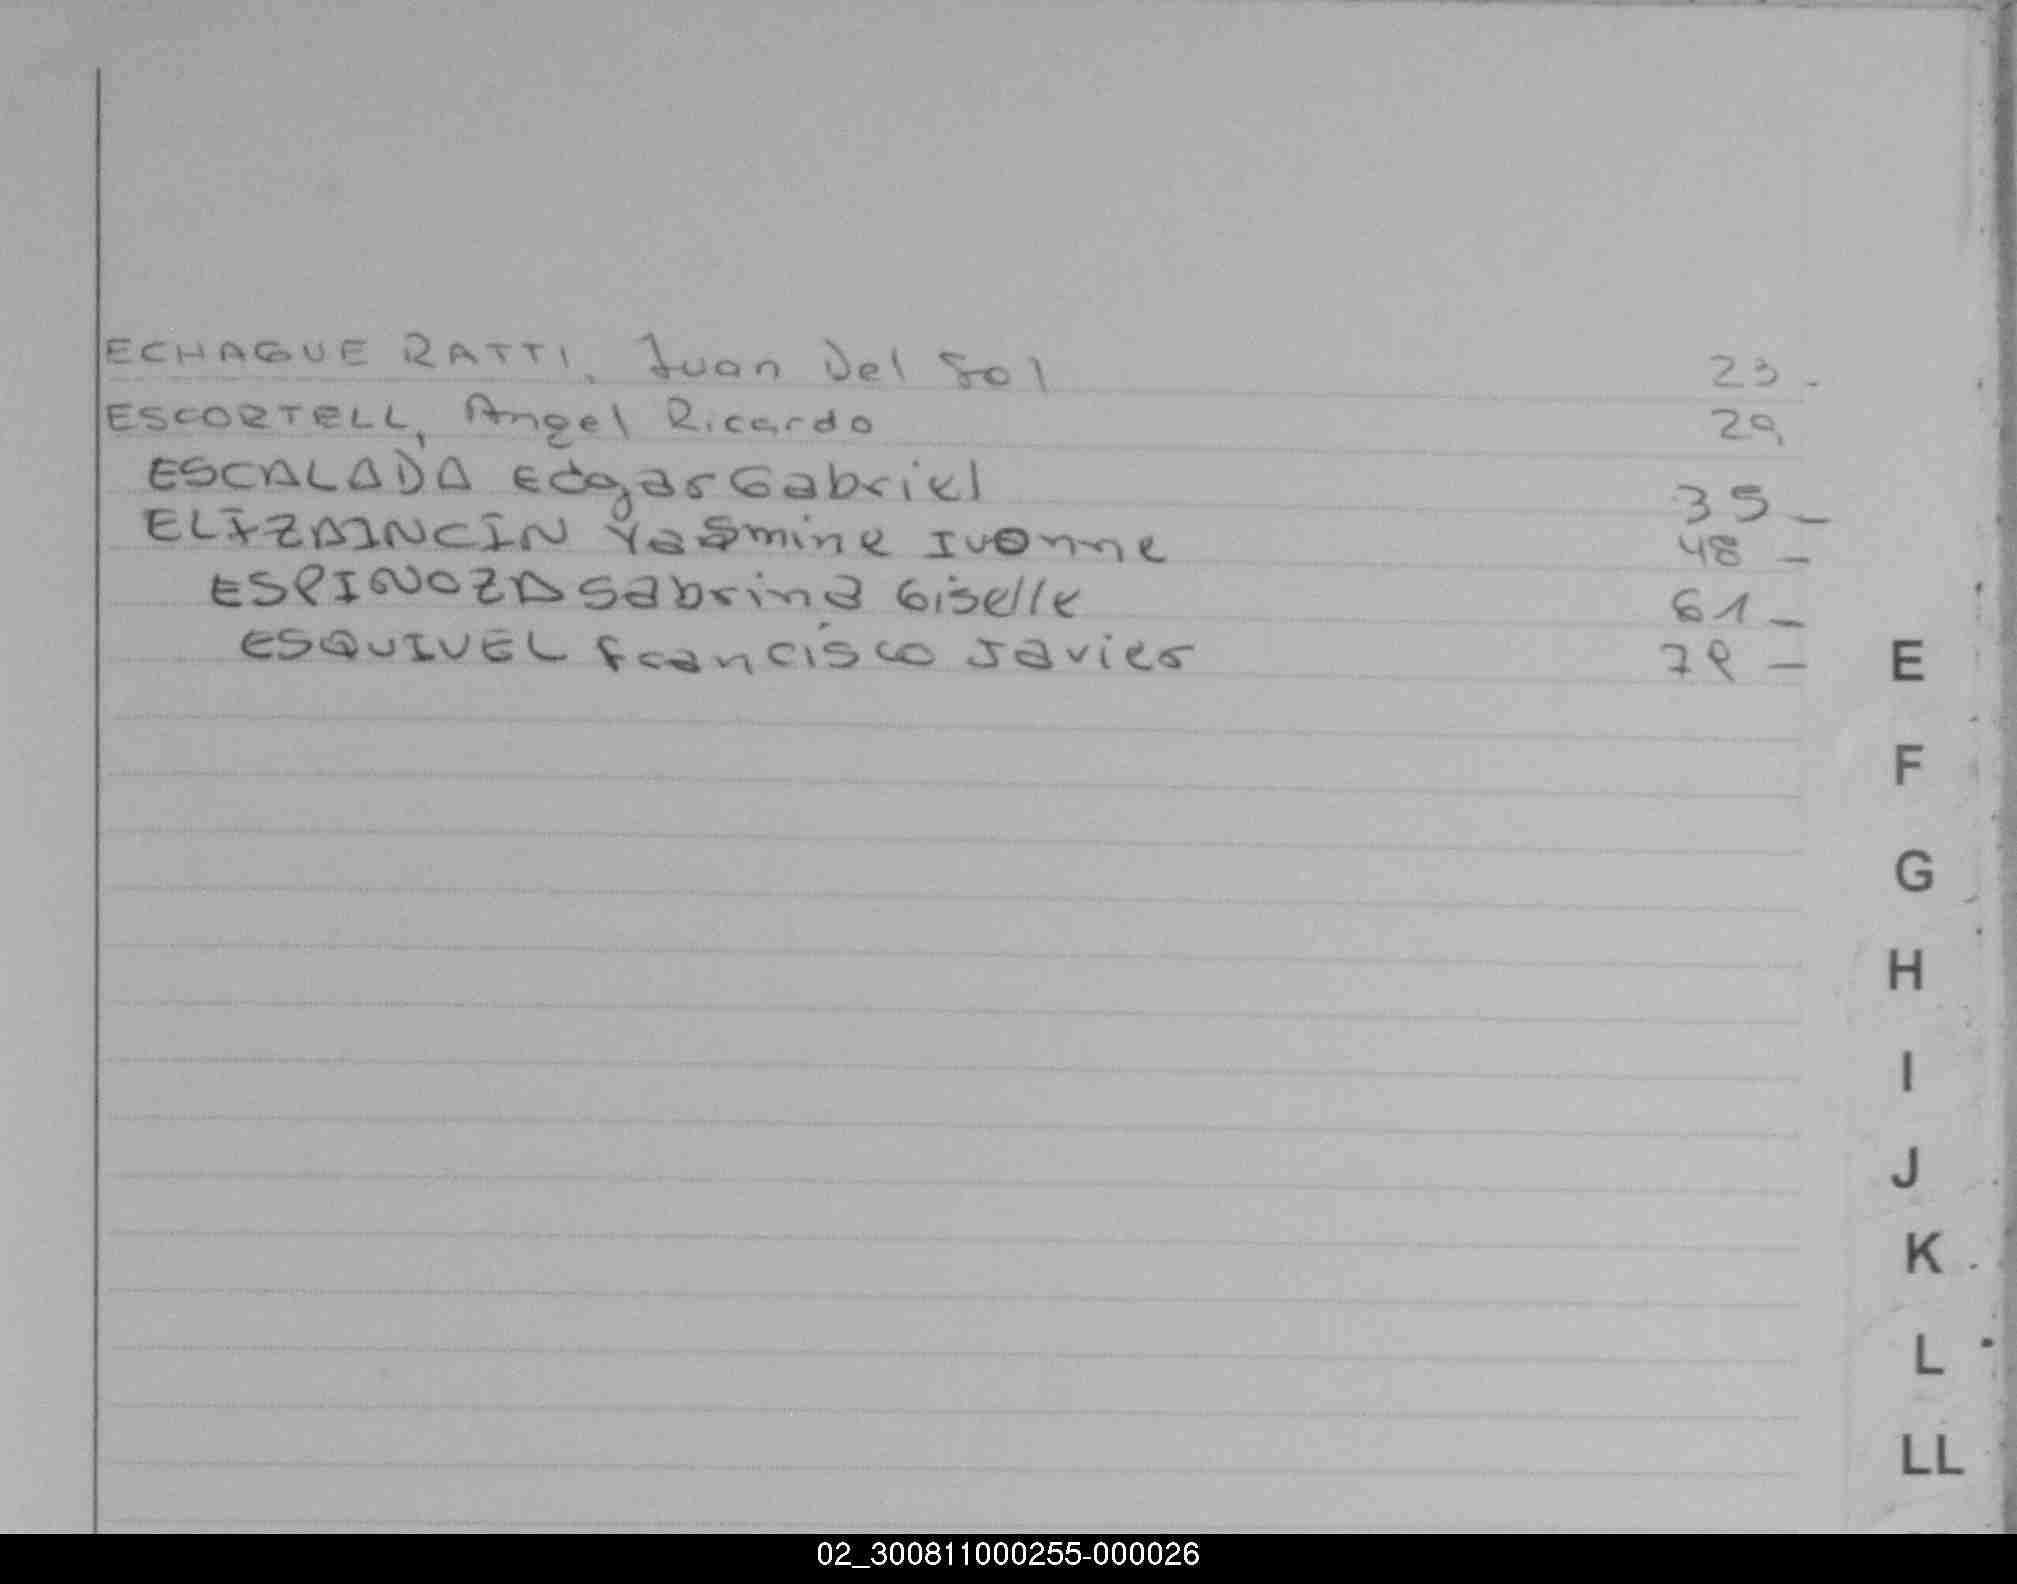 ECHAGUE RATTI, Juan Del Sol 23.
ESCORTELL, Angel Ricardo 29
ESCALADA Edgar Gabriel 35_
ELIZAINCIN Yasmine Ivonne 48 -
ESPINOZA Sabrina Giselle 61_
ESQUIVEL francisco Javier 78 -
E
F
G
H
I
J
K
L
LL
02_300811000255-000026